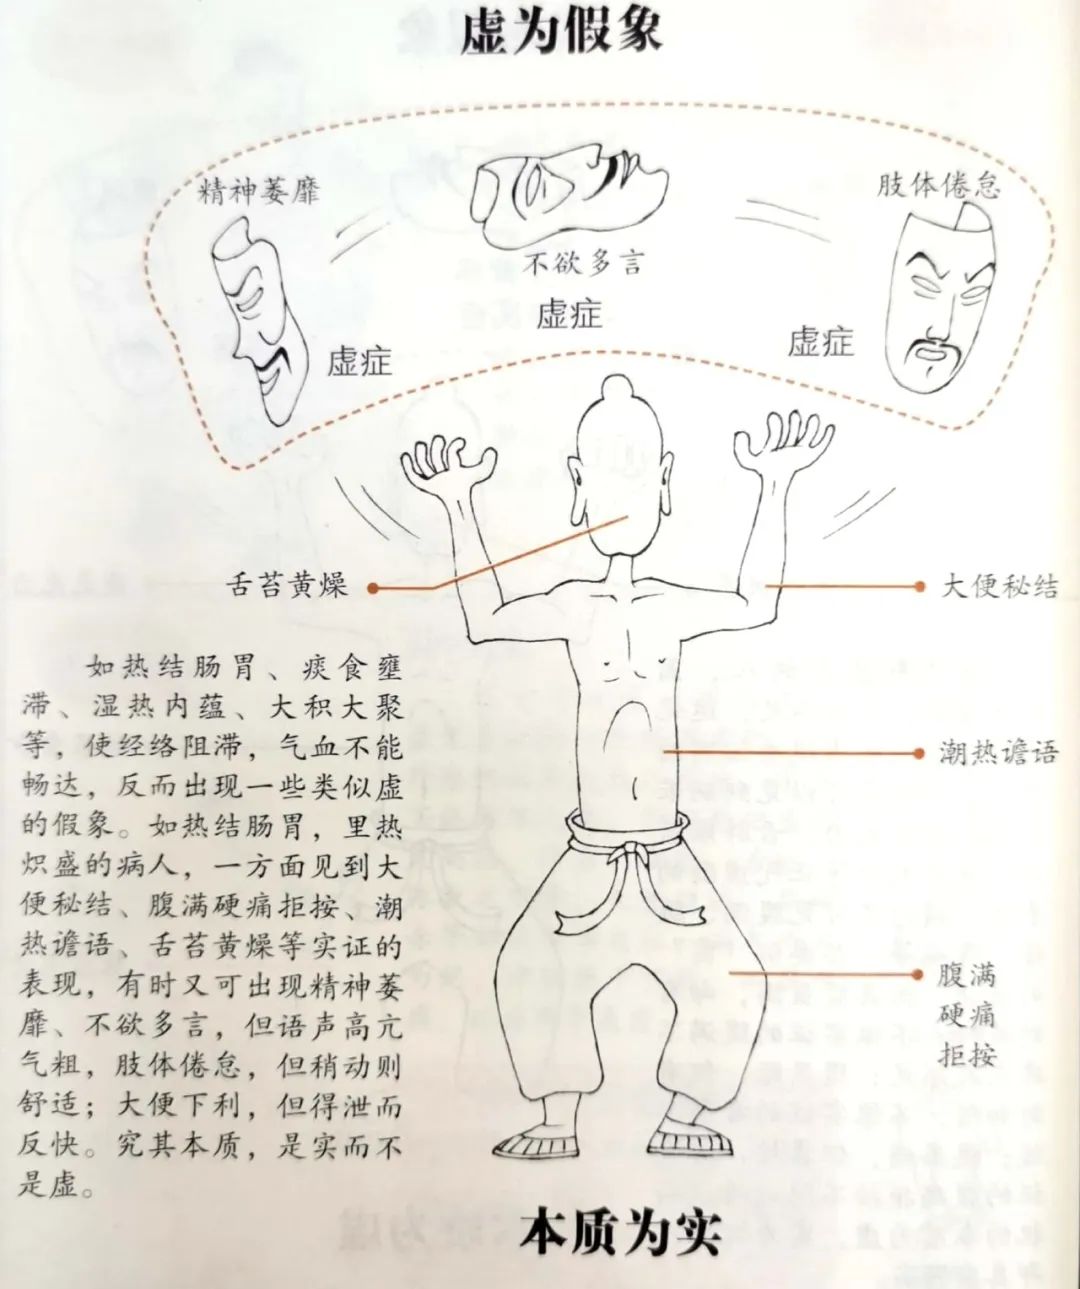 虚为假象
精神萎靡
肢体倦怠
不欲多言
虚症
虚症
虚症
舌苔黄燥
大便秘结
如热结肠胃、痰食壅
滞、湿热内蕴、大积大聚
等，使经络阻滞，气血不能
畅达，反而出现一些类似虚
的假象。如热结肠胃，里热
炽盛的病人，一方面见到大
便秘结、腹满硬痛拒按、潮
热谵语、舌苔黄燥等实证的
表现，有时又可出现精神萎
靡、不欲多言，但语声高亢
气粗，肢体倦怠，但稍动则
舒适；大便下利，但得泄而
反快。究其本质，是实而不
是虚。
潮热谵语
腹满
硬痛
拒按
本质为实